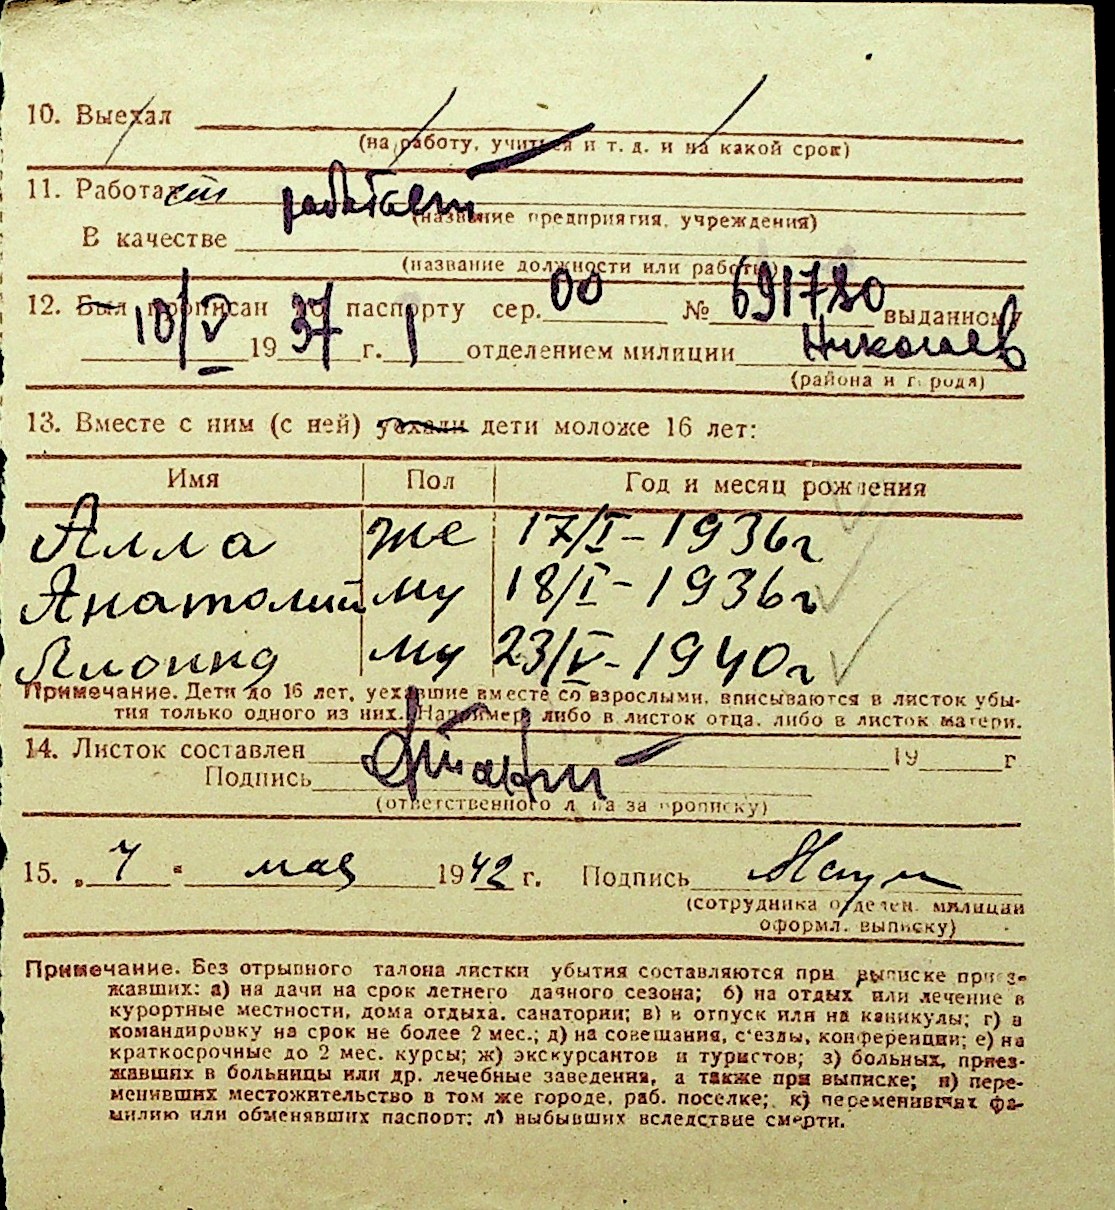 10. Выехал
(на работу, учиться и т. д. и на какой срок)
11. Работает работает
(название предприятия, учреждения)
В качестве
(название должности или работы)
12. Был прописан по паспорту сер. 00 № 691780 выданному
10/V 1937 г. 1 отделением милиции Николаев
(района и города)
13. Вместе с ним (с ней) уехали дети моложе 16 лет:
Имя Пол Год и месяц рождения
Алла же 17/I-1936г
Анатолий му 18/I-1936г
му 23/V-1940г
Примечание. Дети до 16 лет, уехавшие вместе со взрослыми, вписываются в листок убы-
тия только одного из них. Например либо в листок отца, либо в листок матери.
14. Листок составлен 19 г
Подпись
(ответственного лица за прописку)
15. „7" мая 1942 г. Подпись
(сотрудника отделен. милиции
оформл. выписку)
Примечание. Без отрывного талона листки убытия составляются при выписке приез-
жавших: а) на дачи на срок летнего дачного сезона; б) на отдых или лечение в
курортные местности, дома отдыха, санатории; в) в отпуск или на каникулы; г) в
командировку на срок не более 2 мес.; д) на совещания, с'езды, конференции; е) на
краткосрочные до 2 мес. курсы; ж) экскурсантов и туристов; з) больных, приез-
жавших в больницы или др. лечебные заведения, а также при выписке; и) пере-
менивших местожительство в том же городе, раб. поселке; к) переменивших фа-
милию или обменявших паспорт; л) выбывших вследствие смерти.